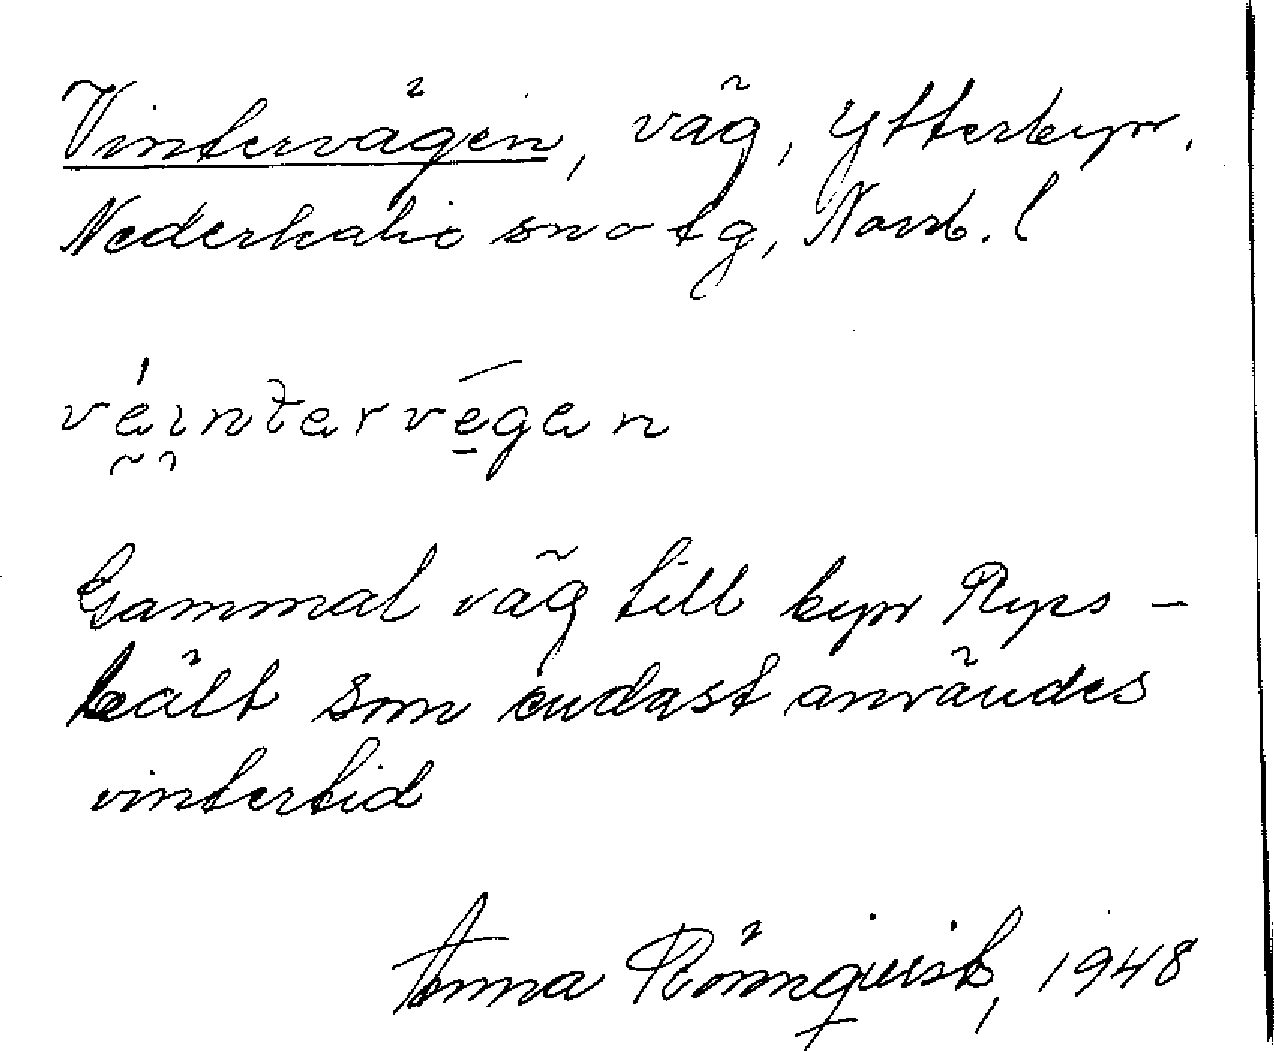 Vintervägen, väg, Ytterbyn.
Nederkalix sn o tg, Norrb. l
véintarvégan
Gammal väg till byn Rys-
bält som endast användes
vintertid
Anna Rönnqvist, 1948